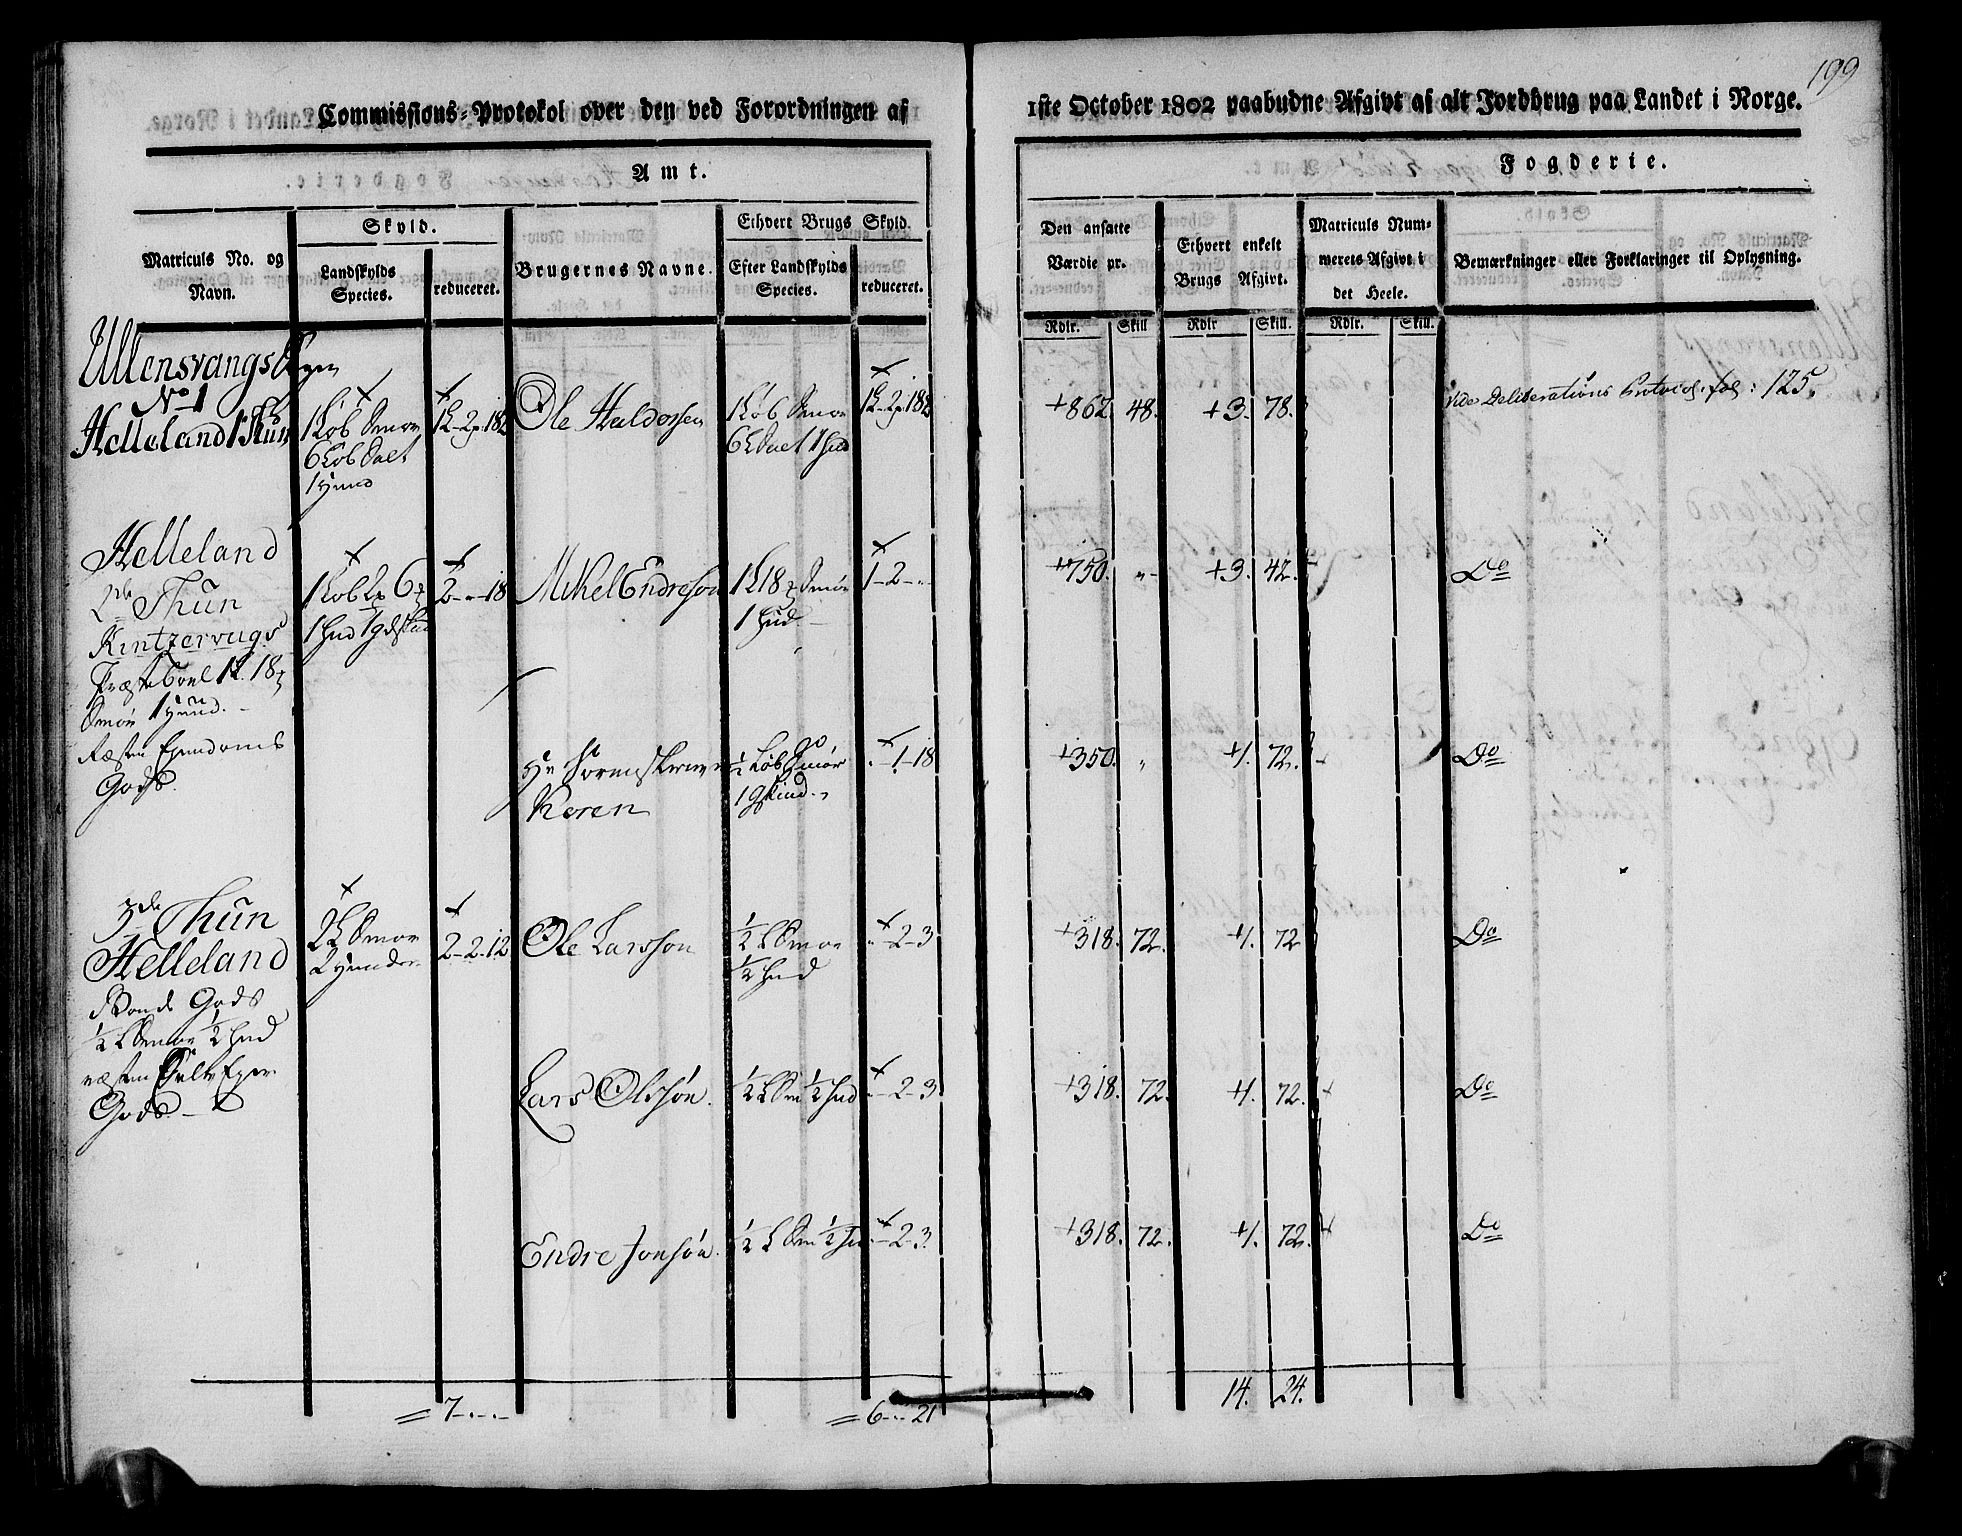 199
Commissions-Protokol over den ved Forordningen af
1ste October 1802 paabudne Afgivt af alt Jordbrug paa Landet i Norge.
Amt.
Fogderie.
Matriculs No. og
Navn.
Skyld.
Landskylds
Species.
reduceret.
Brugernes Navne.
Ethvert Brugs Skyld.
Efter Landskylds
Species.
reduceret.
Den ansatte
Værdie pr.
Rdlr. Skill
Ethvert enkelt
Brugs Afgivt.
Rdlr Skill.
Matriculs Num-
merets Afgivt i
det Heele.
Rdlr. Skill.
Bemærkninger eller Forklaringer til Oplysning.
Ullensvangs
No 1
Helleland 1ste Thun
1 Løb Smør
6 Løb Salt
1 Huud
Ole Haldorsen
1 Løb Smør
+862. 48. +3. 78.
Vide Deliberations Protocol. fol: 125.
Helleland
2de Thun
Kintzervigs
Præsteboel 1 18
Smør 1 Huud.
Resten Ejendoms
Gods.
2-"-18
Mikel Endreson
1 18 Smør
1 Hud.
1-2-"-
+750. "- +3. 42.
Do
Hr Sorenskriver
Koren
½ Løb Smør
1 gskind
"-1-18
+350. " +1. 72.
Do
3de Thun
Helleland
Bonde Gods
½ Smør ½ Hud
resten Selv Eyer
Gods.
2 Smør
2 Huuder
2-2-12
Ole Larsson
½ Smør
½ Hud
"-2-3
+318. 72. +1. 72
Do
Lars Olssøn.
½ Sm ½ Hud
"-2-3
+318. 72. +1. 72.
Do
Endre Jonsøn.
½ Sm ½ Hu
"-2-3
+318. 72. +1. 72.
Do
= 7-"-"-
= 6-"-21
14. 24.